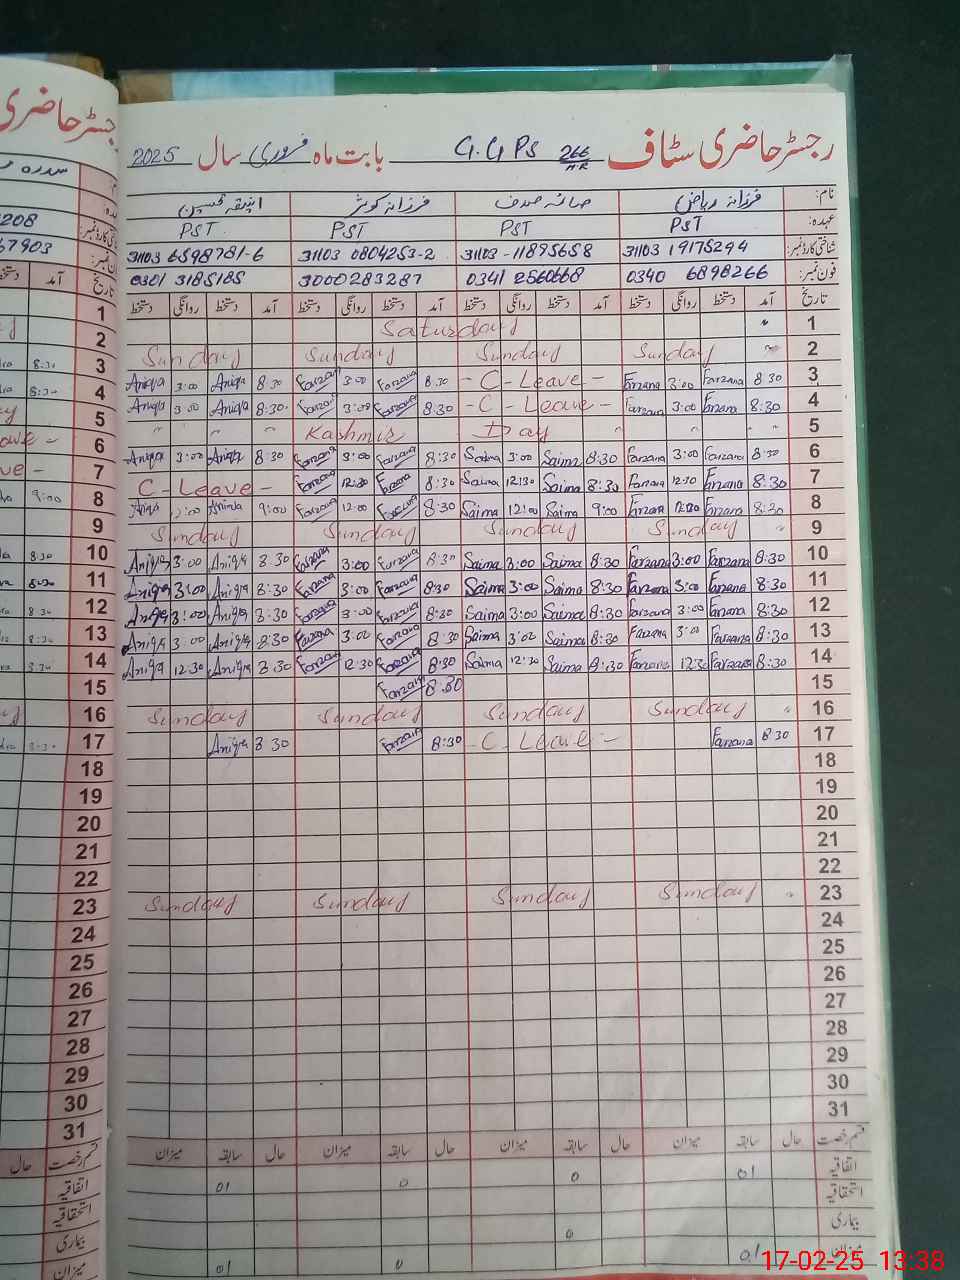 رجسٹر حاضری سٹاف G.G PS 266/HR بابت ماہ فروری سال 2025
نام: فرزانہ ریاض صائمہ صدف فرزانہ کوثر انیقہ تحسین
عہدہ: PST PST PST PST
شناختی کارڈ نمبر: 31103 19175294 31103-11895658 31103 0804253-2 31103 6598781-6
فون نمبر: 0340 6898266 0341 2560668 3000283287 0301 3185185
تاریخ آمد دستخط روانگی دستخط آمد دستخط روانگی دستخط آمد دستخط روانگی دستخط آمد دستخط روانگی دستخط
Saturday 1
Sunday Sunday Sunday Sunday 2
Aniqa 3:00 Aniqa 8:30 Farzana 3:00 Farzana 8:30 - C - Leave - Farzana 3:00 Farzana 8 30 3
Aniqa 3:00 Aniqa 8:30 Farzana 3:00 Farzana 8:30 - C - Leave - Farzana 3:00 Farzana 8:30 4
" " " " Kashmir Day " " " 5
Aniqa 3:00 Aniqa 8 30 Farzana 3:00 Farzana 8:30 Saima 3:00 Saima 8:30 Farzana 3:00 Farzana 8:30 6
C - Leave - Farzana 12:30 Farzana 8:30 Saima 12:30 Saima 8:30 Farzana 12:30 Farzana 8:30 7
Aniqa Aniqa 9:00 Farzana 12:00 Farzana 8:30 Saima 12:00 Saima 9:00 Farzana 12:30 Farzana 8:30 8
Sunday Sunday Sunday Sunday " 9
Aniqa 3:00 Aniqa 8 30 Farzana 3:00 Farzana 8:30 Saima 3:00 Saima 8:30 Farzana 3:00 Farzana 8:30 10
Aniqa 3:00 Aniqa 8:30 Farzana 3:00 Farzana 8:30 Saima 3:00 Saima 8:30 Farzana 3:00 Farzana 8:30 11
Aniqa 3:00 Aniqa 8:30 Farzana 3:00 Farzana 8:30 Saima 3:00 Saima 8:30 Farzana 3:00 Farzana 8:30 12
Aniqa 3:00 Aniqa 8:30 Farzana 3:00 Farzana 8:30 Saima 3:00 Saima 8:30 Farzana 3:00 Farzana 8:30 13
Aniqa 12:30 Aniqa 8:30 Farzana 12:30 Farzana 8:30 Saima 12:30 Saima 8:30 Farzana 12:30 Farzana 8:30 14
Farzana 8:30 15
Sunday Sunday Sunday Sunday " 16
Aniqa 8 30 Farzana 8:30 - C - Leave - Farzana 8 30 17
18
19
20
21
22
Sunday Sunday Sunday Sunday " 23
24
25
26
27
28
29
30
31
قسم رخصت حال سابقہ میزان حال سابقہ میزان حال سابقہ میزان حال سابقہ میزان
اتفاقیہ 01 0 0 01
استحقاقیہ
بیماری 0
میزان 01 0 01
رجسٹر حاضری
سدرہ
208
67903
آمد تاریخ
1
2
8:30 3
8:30 4
5
6
7
9:00 8
9
8:30 10
8:30 11
8:30 12
8:30 13
8:30 14
15
16
8:30 17
18
19
20
21
22
23
24
25
26
27
28
29
30
31
حال قسم رخصت
اتفاقیہ
استحقاقیہ
بیماری
میزان
17-02-25 13:38